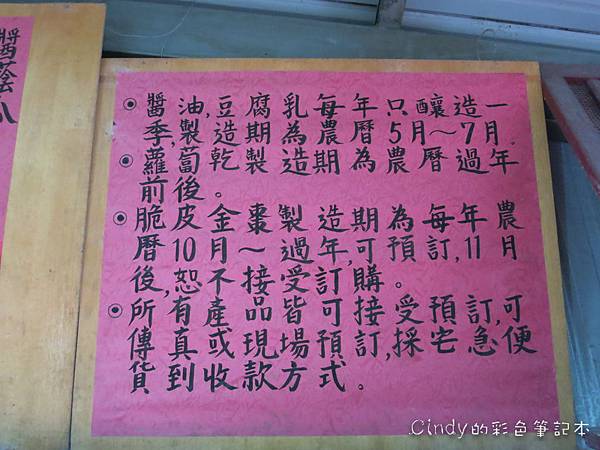 醬油,豆腐乳每年只釀造一
季,製造期為農曆5月～7月.
蘿蔔乾製造期為農曆過年
前後。
脆皮金棗製造期為每年農
曆10月～過年,可預訂,11月
後,恕不接受訂購。
所有產品皆可接受預訂,可
傳真或現場預訂,採宅急便
貨到收款方式。
Cindy的彩色筆記本